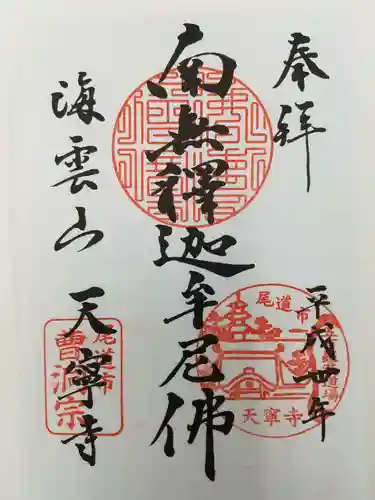 奉拝
平成卅年
南無釋迦牟尼佛
海雲山
天寧寺
尾道市
天寧寺
尾道市
曹洞宗